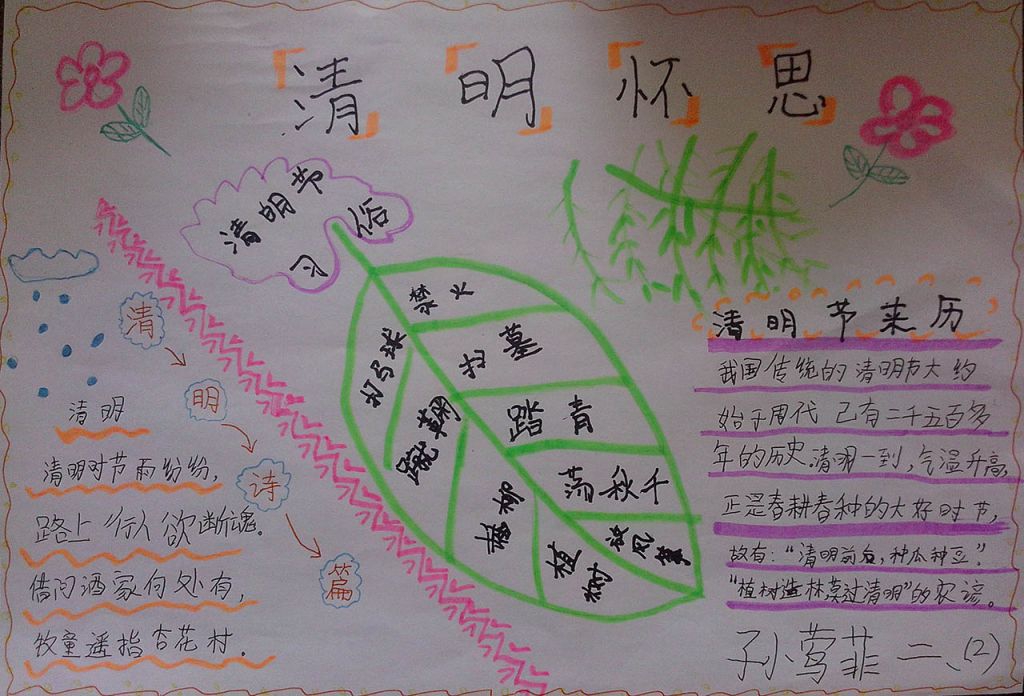 清明怀思
清明节
习俗
禁火
扫墓
踏青
荡秋千
放风筝
打马球
蹴鞠
插柳
植树
清明诗篇
清明
清明时节雨纷纷,
路上行人欲断魂.
借问酒家何处有,
牧童遥指杏花村.
清明节来历
我国传统的清明节大约
始于周代 已有二千五百多
年的历史.清明一到,气温升高,
正是春耕春种的大好时节,
故有:“清明前后,种瓜种豆.”
“植树造林莫过清明”的农谚。
孙小莺菲 二、(2)